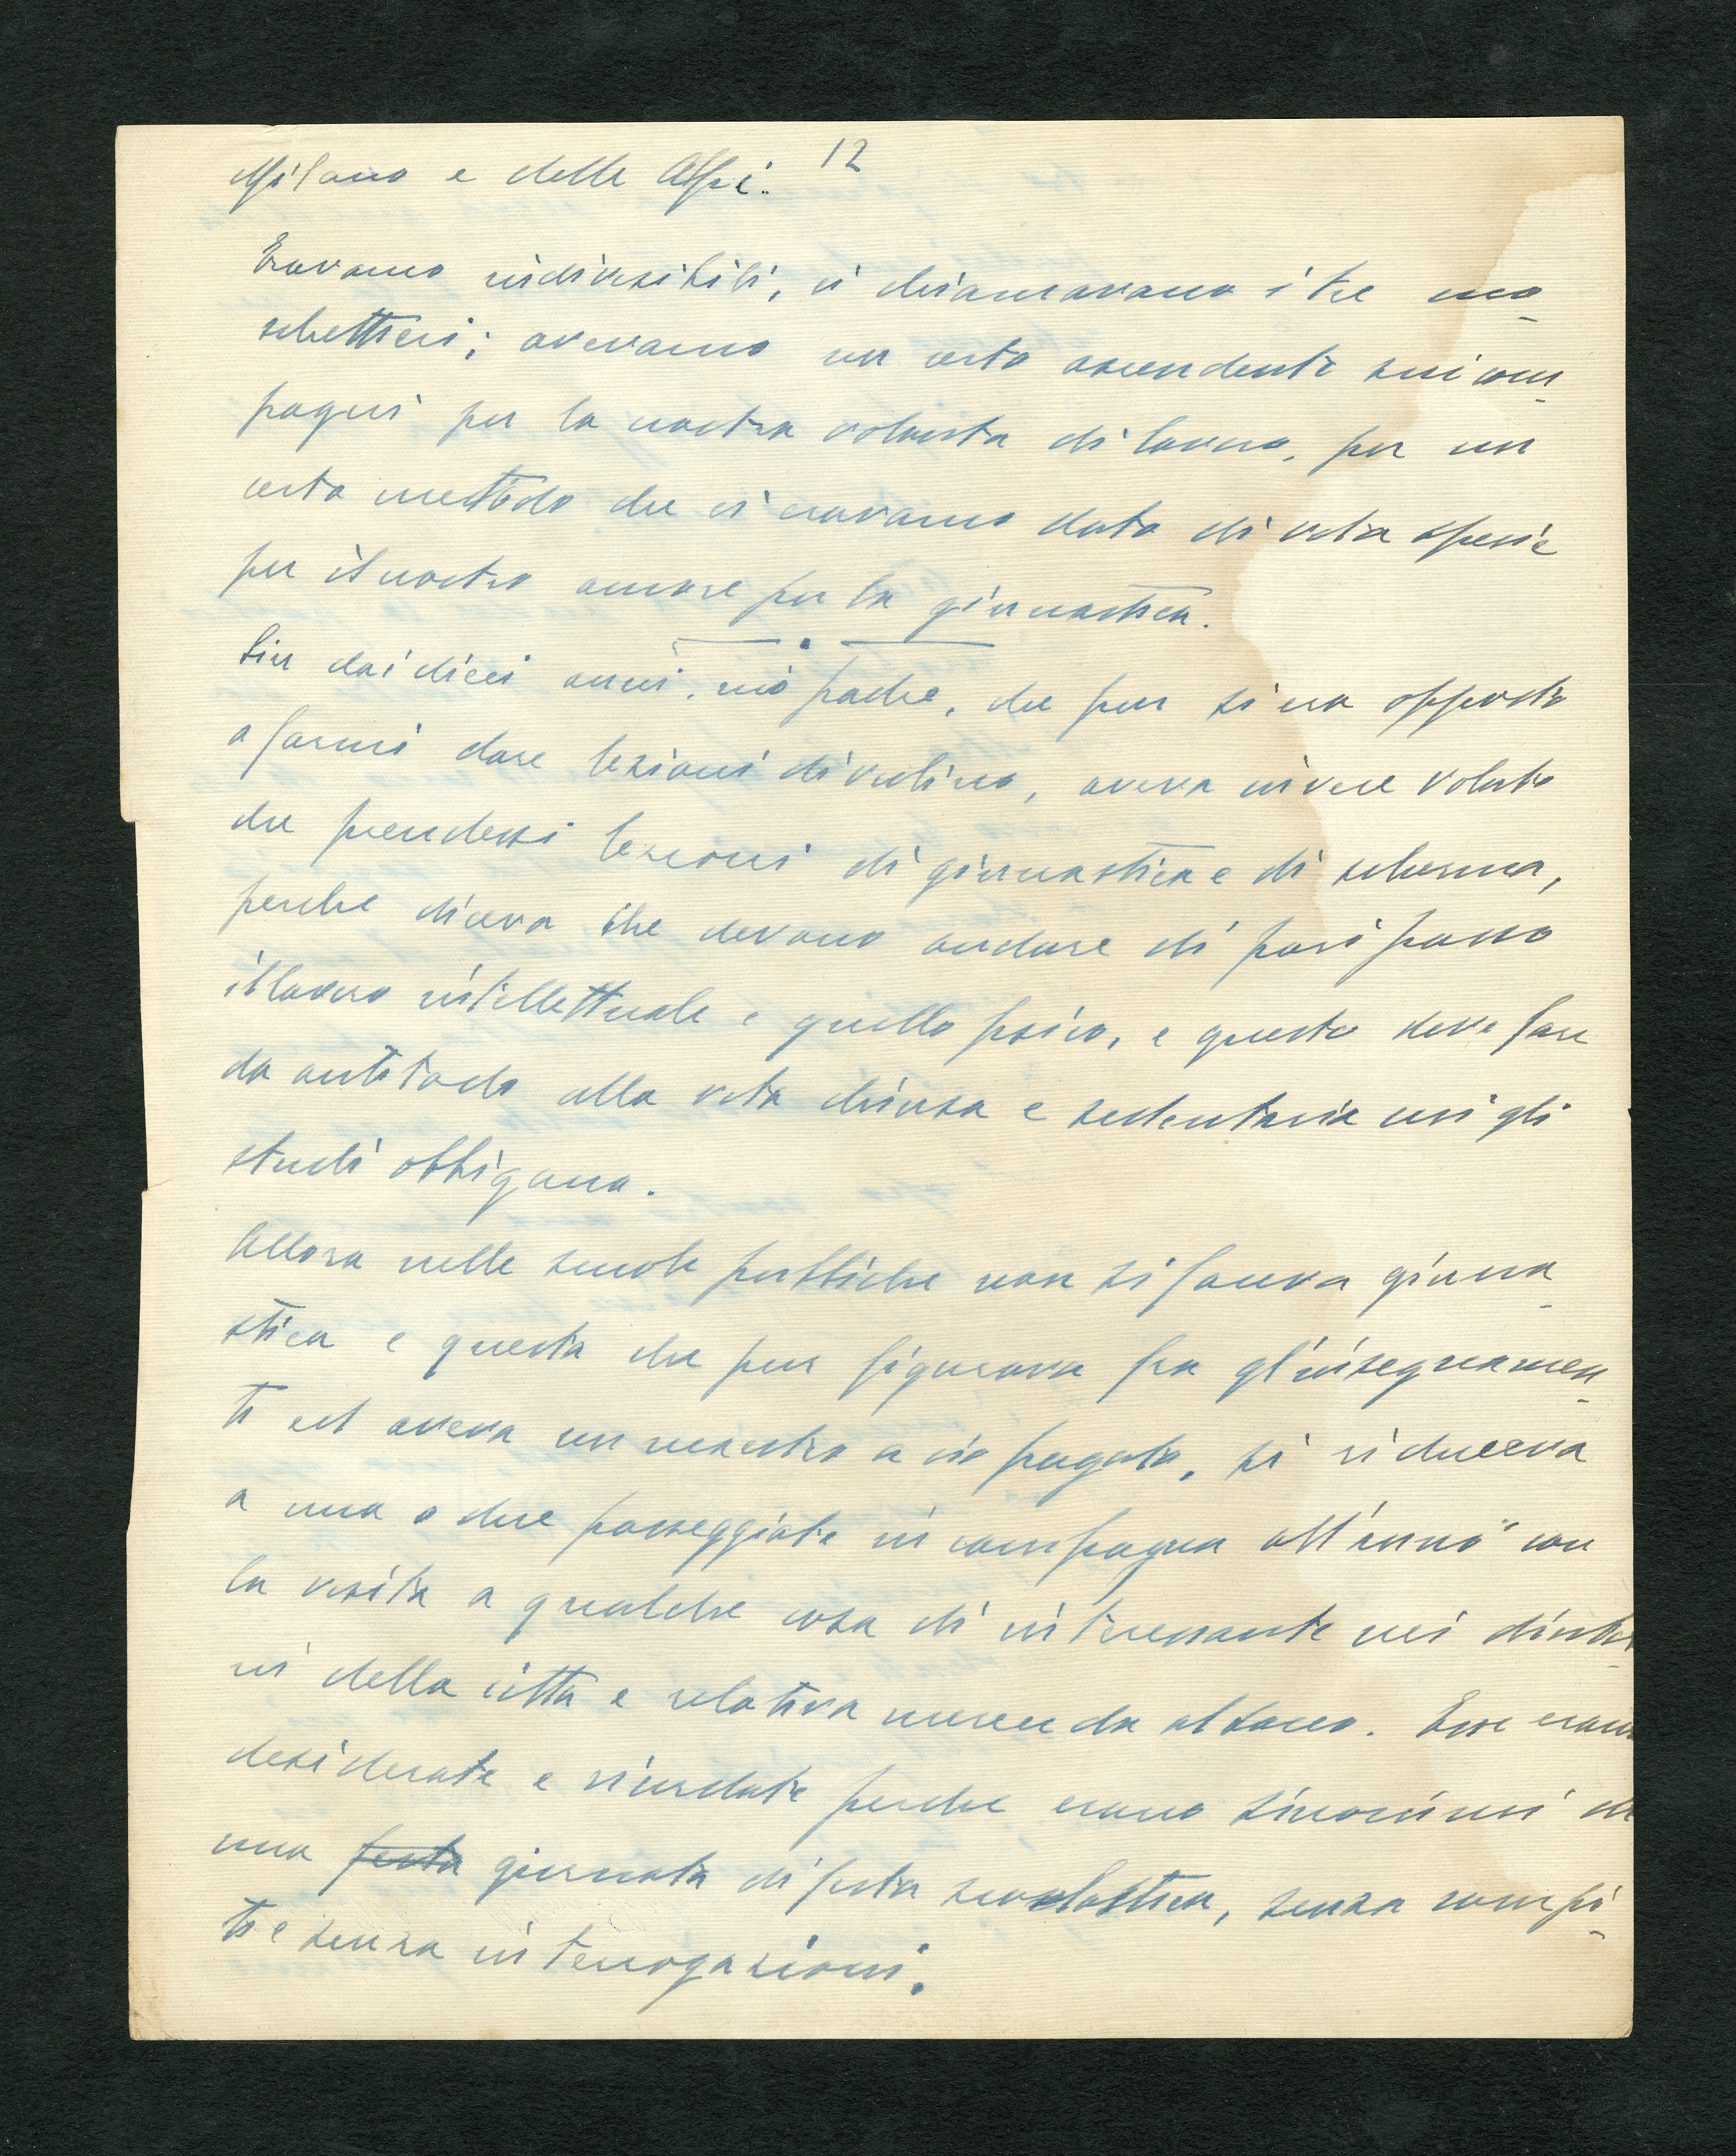 12
Milano e delle Alpi.
Eravamo indivisibili, ci chiamavano i tre mo
schettieri; avevamo un certo ascendente sui com
pagni per la nostra volontà di lavoro, per un
certo mettodo che ci eravamo dato di vita specie
per il nostro amore per la ginnastica.
Sin dai dieci anni, mio padre, che pur si era opposto
a farmi dare lezioni di violino, aveva invece voluto
che prendessi lezioni di ginnastica e di scherma,
perche diceva che devono andare di pari passo
il lavoro intellettuale e quello fisico, e questo deve fare
da antitodo alla vita chiusa e sedentaria cui gli
studi obbigano.
Allora nelle scuole pubbliche non si faceva ginna
stica e questa che pur figurava fra gl'insegnamen
ti ed aveva un maestro a ciò pagato, si riduceva
a una o due passeggiate in campagna all'anno con
la visita a qualche cosa di interessante nei dintor
ni della città e relativa merenda al sacco. Esse erano
desiderate e ricordate perche erano sinonimi di
una festa giornata di festa scolastica, senza compi
ti e senza interrogazioni.